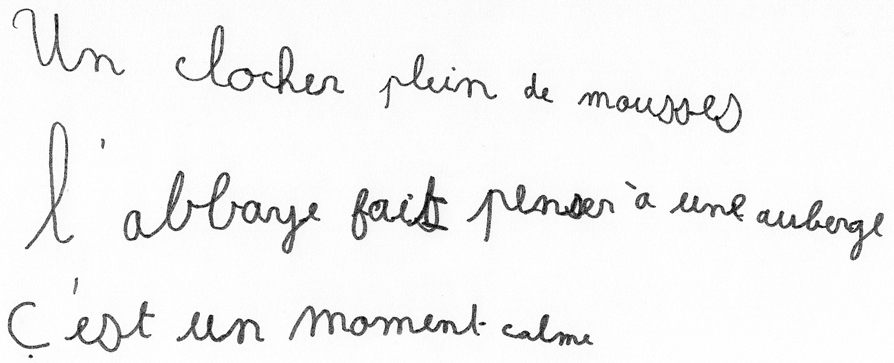 Un clocher plein de mousses
l'abbaye fait penser à une auberge
Ç'est un moment calme